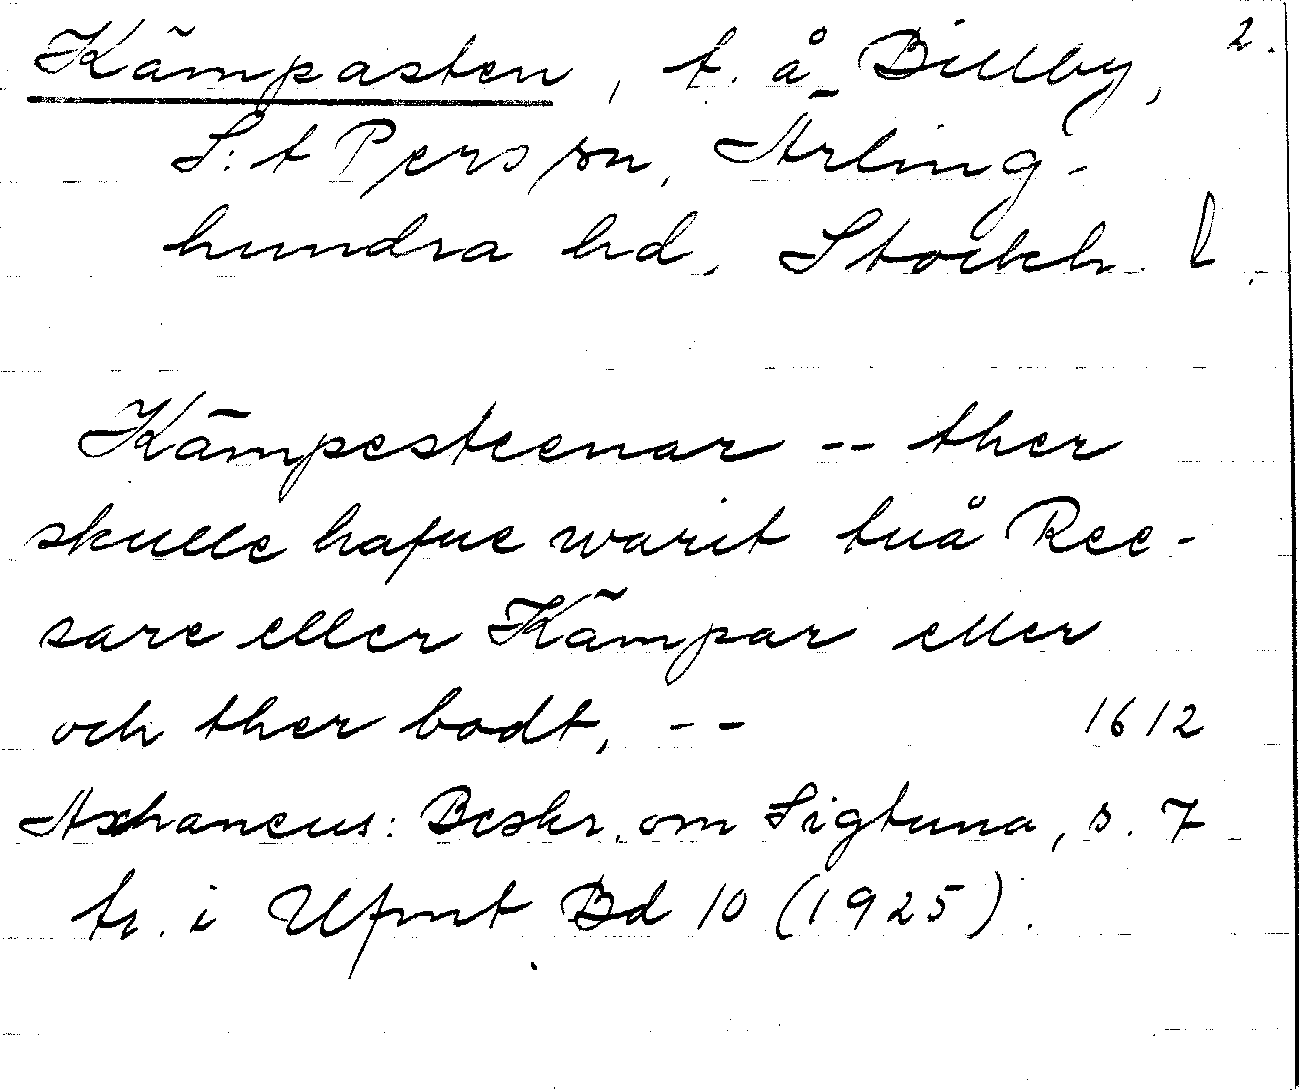 Kämpasten, t. å Billby, 2.
S:t Pers sn, Ärling-
hundra hd, Stockh. l.
Kämpesteenar -- ther
skulle hafue warit tuå Ree-
sare eller Kämpar eller
och ther bodt, -- 1612
Axhaneus: Beskr. om Sigtuna, s. 7
tr. i Ufmt Bd 10 (1925).